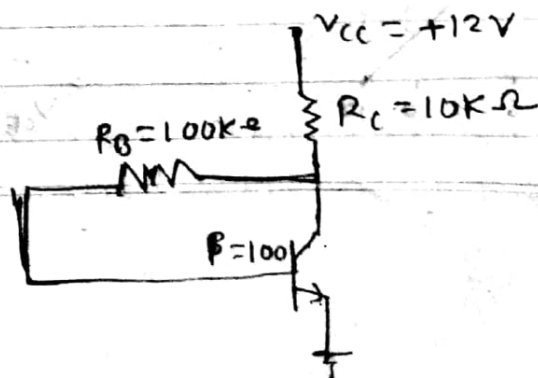 VCC = +12V
RC = 10KΩ
RB = 100Ke
β = 100